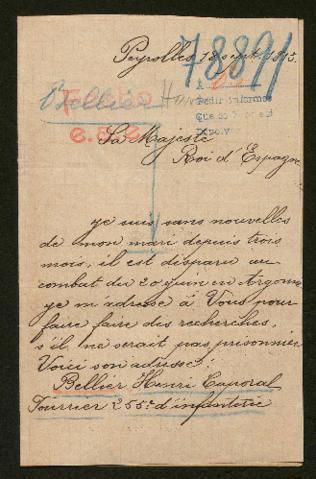 Peyrolles 12 sept. 1915.
78891
Fecho
Bellier
e.s.e.
Pedir informes
Sa Majesté
Roi d'Espagne
je suis sans nouvelles
de mon mari depuis trois
mois, il est disparu au
combat du 20 juin en Argonne
je m'adresse à Vous pour
faire faire des recherches,
s'il ne serait pas prisonnier
Voici son adresse:
Bellier Henri Caporal
Fourrier 255e d'infanterie